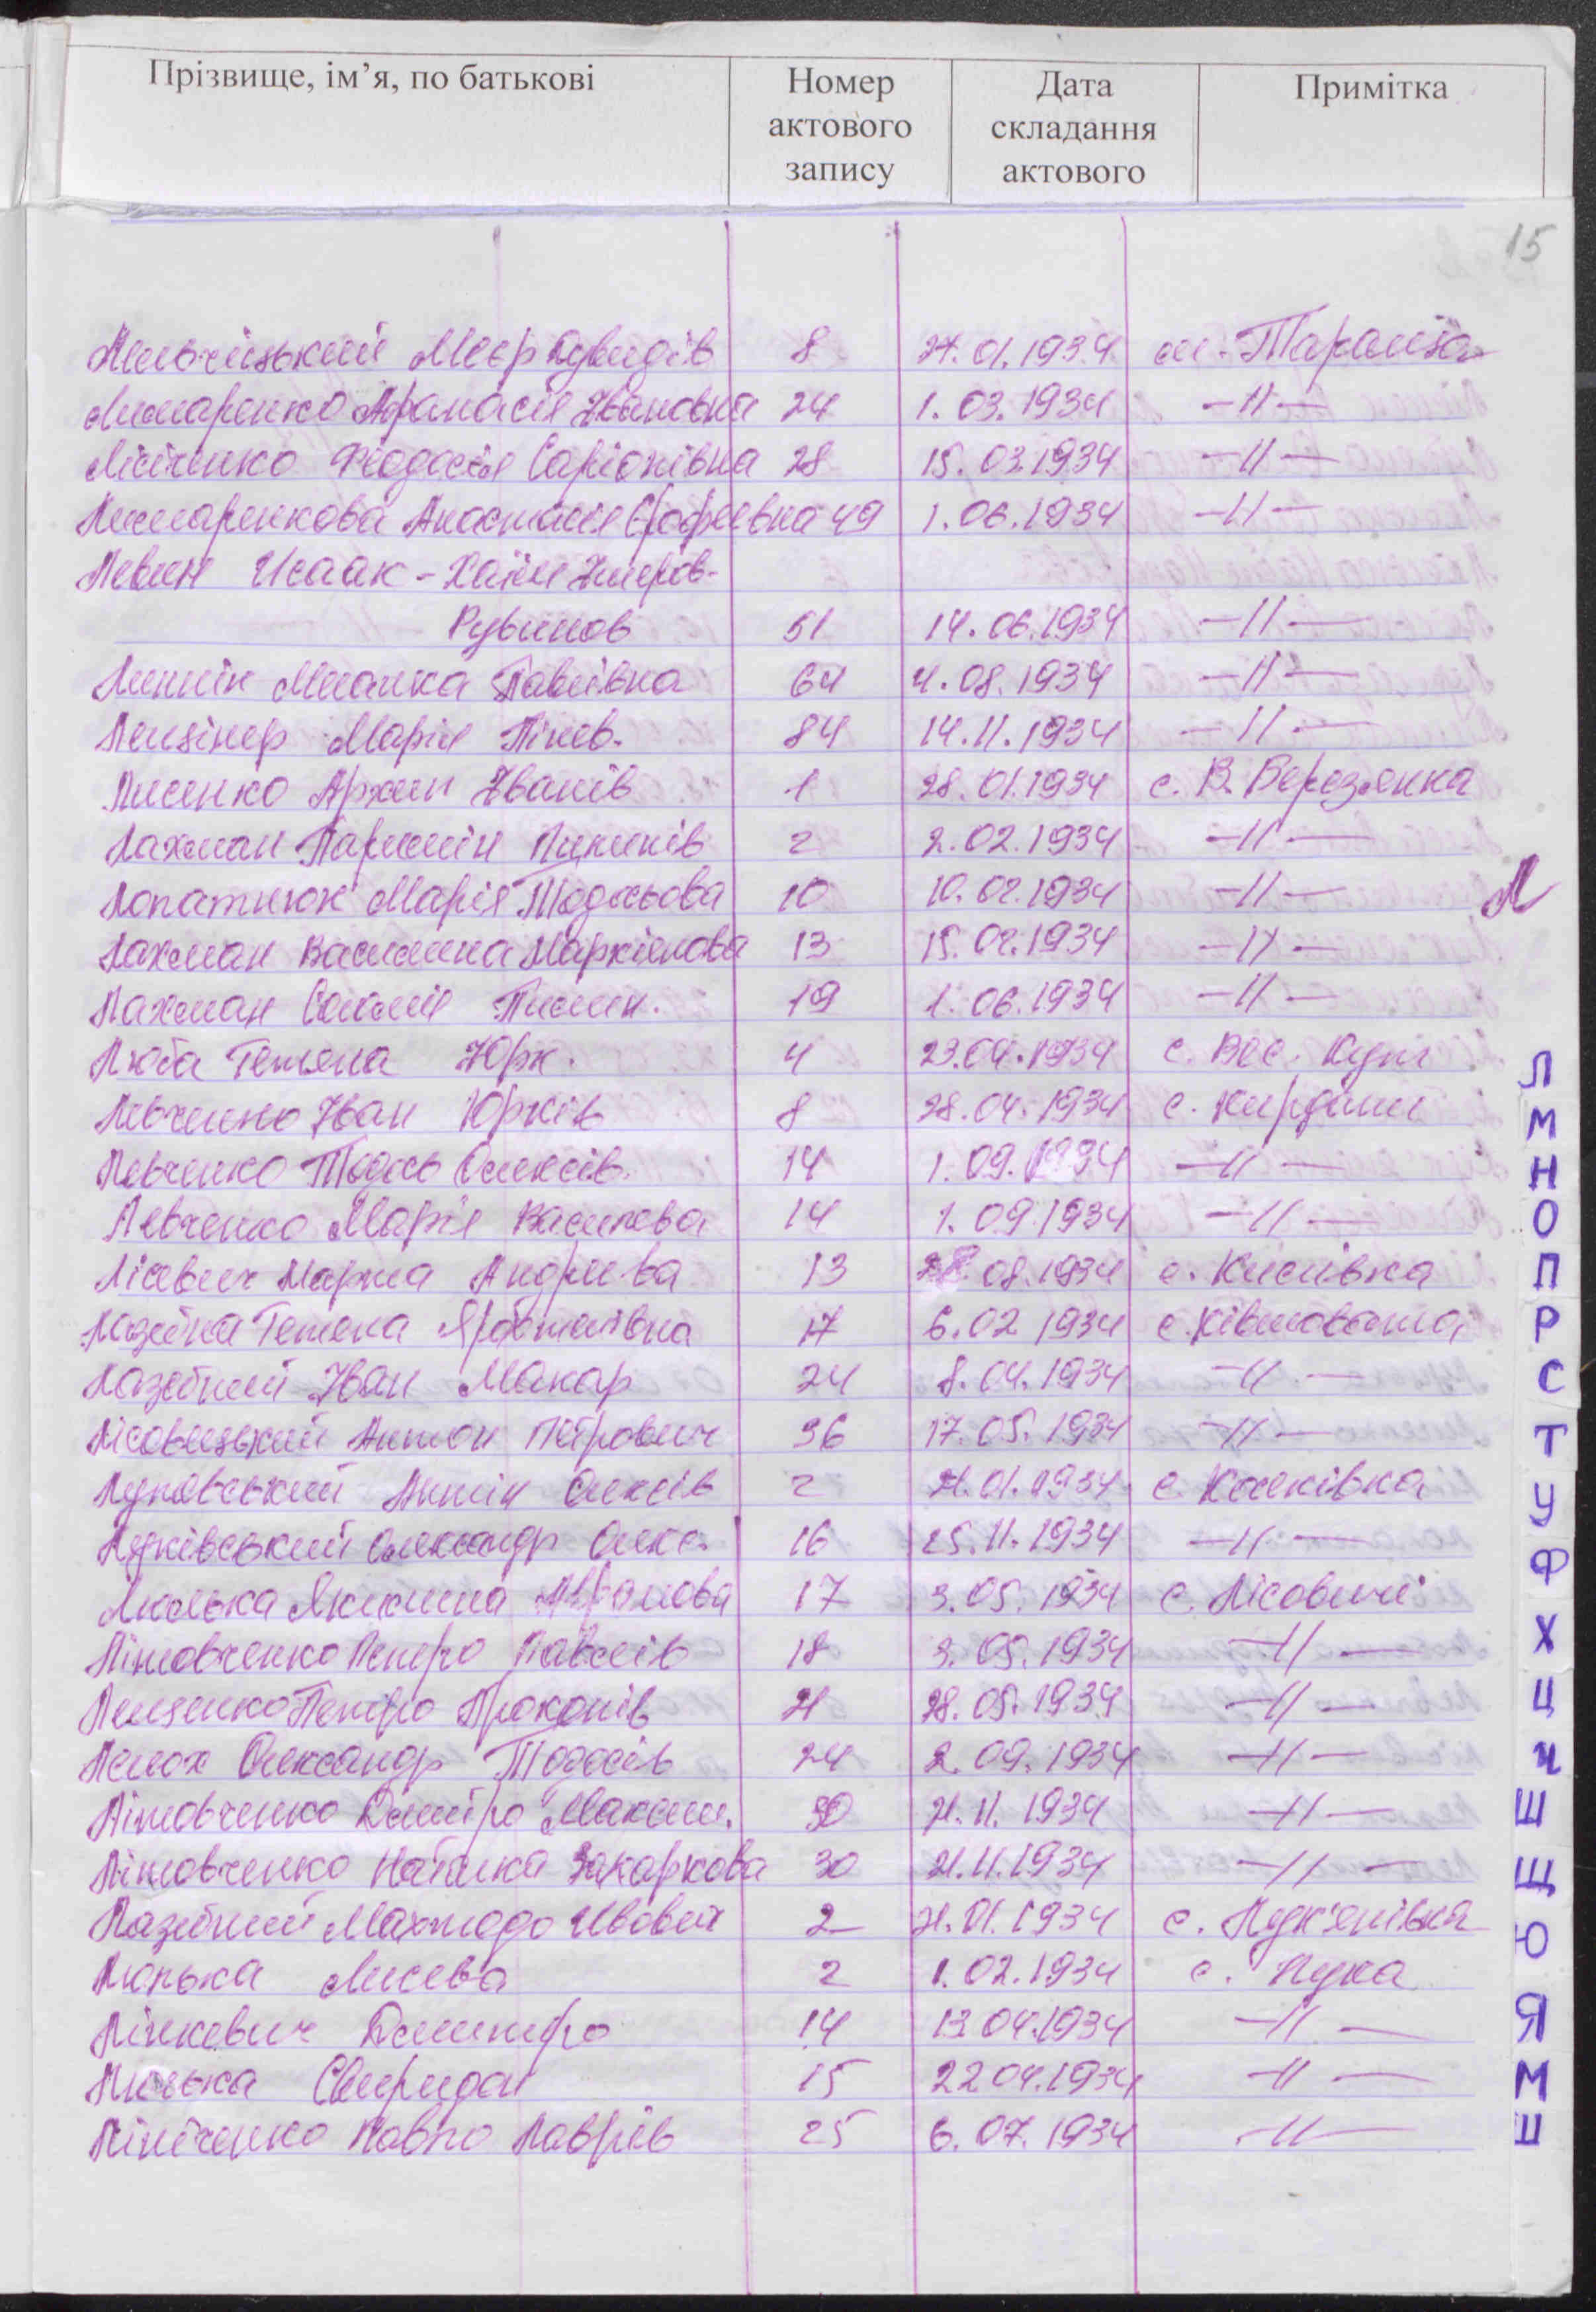 Прізвище, ім’я, по батькові Номер актового запису Дата складання актового Примітка
15
Мєєр 8 01.1934 м. Тараща
Лимаренко Афанасія Івановна 24 1.03.1934 -//-
Лісіченко Феодосія 28 15.03.1934 -//-
Лимаренкова Анастасія 49 1.06.1934 -//-
Левин Исаак-Хаїм
Рувинов 51 14.06.1934 -//-
Линнік Павлівна 64 4.08.1934 -//-
Марія 84 14.11.1934 -//-
Лисенко Архип Іванів 1 28.01.1934 с. В. Березянка
Лахман 2 2.02.1934 -//-
Лопатнюк Марія Тодосьова 10 10.02.1934 -//-
Л
Лахман Василина Маркіянова 13 15.02.1934 -//-
Лахман 19 1.06.1934 -//-
Люба Тетяна Юрк. 4 23.04.1934 с. Вес. Кут
Левченко Іван Юрків 8 28.04.1934 с. Кирдани
Левченко Тодось Олексів. 14 1.09.1934 -//-
Левченко Марія Василева 14 1.09.1934 -//-
Лісевич Марта Андрієва 13 08.1934 с. Кислівка
Лазебна Тетяна 17 6.02.1934 с. Ківшовата
Лазебний Іван Макар 24 8.04.1934 -//-
Лісовицький Антон Петрович 36 17.05.1934 -//-
Антін Олексів 2 21.01.1934 с. Косяківка
Луківський Олександр Олекс. 16 25.11.1934 -//-
Люлька Якилина 17 3.05.1934 с. Лісовичі
Літовченко Петро Павлів 18 3.05.1934 -//-
Лещенко Петро Прокопів 21 28.05.1934 -//-
Лемох Олександр Тодосів 24 2.09.1934 -//-
Літовченко Дмитро Максим. 30 21.11.1934 -//-
Літовченко Наталка Захаркова 30 21.11.1934 -//-
Лазебний Ивович 2 21.01.1934 с. Лук'янівка
Люлька 2 1.02.1934 с. Лука
Лінкевич Дмитро 14 13.04.1934 -//-
Люлька Свиридон 15 22.04.1934 -//-
Лініченко Павло Лаврів 25 6.07.1934 -//-
Л
М
Н
О
П
Р
С
Т
У
Ф
Х
Ц
Ч
Ш
Щ
Ю
Я
М
Ш